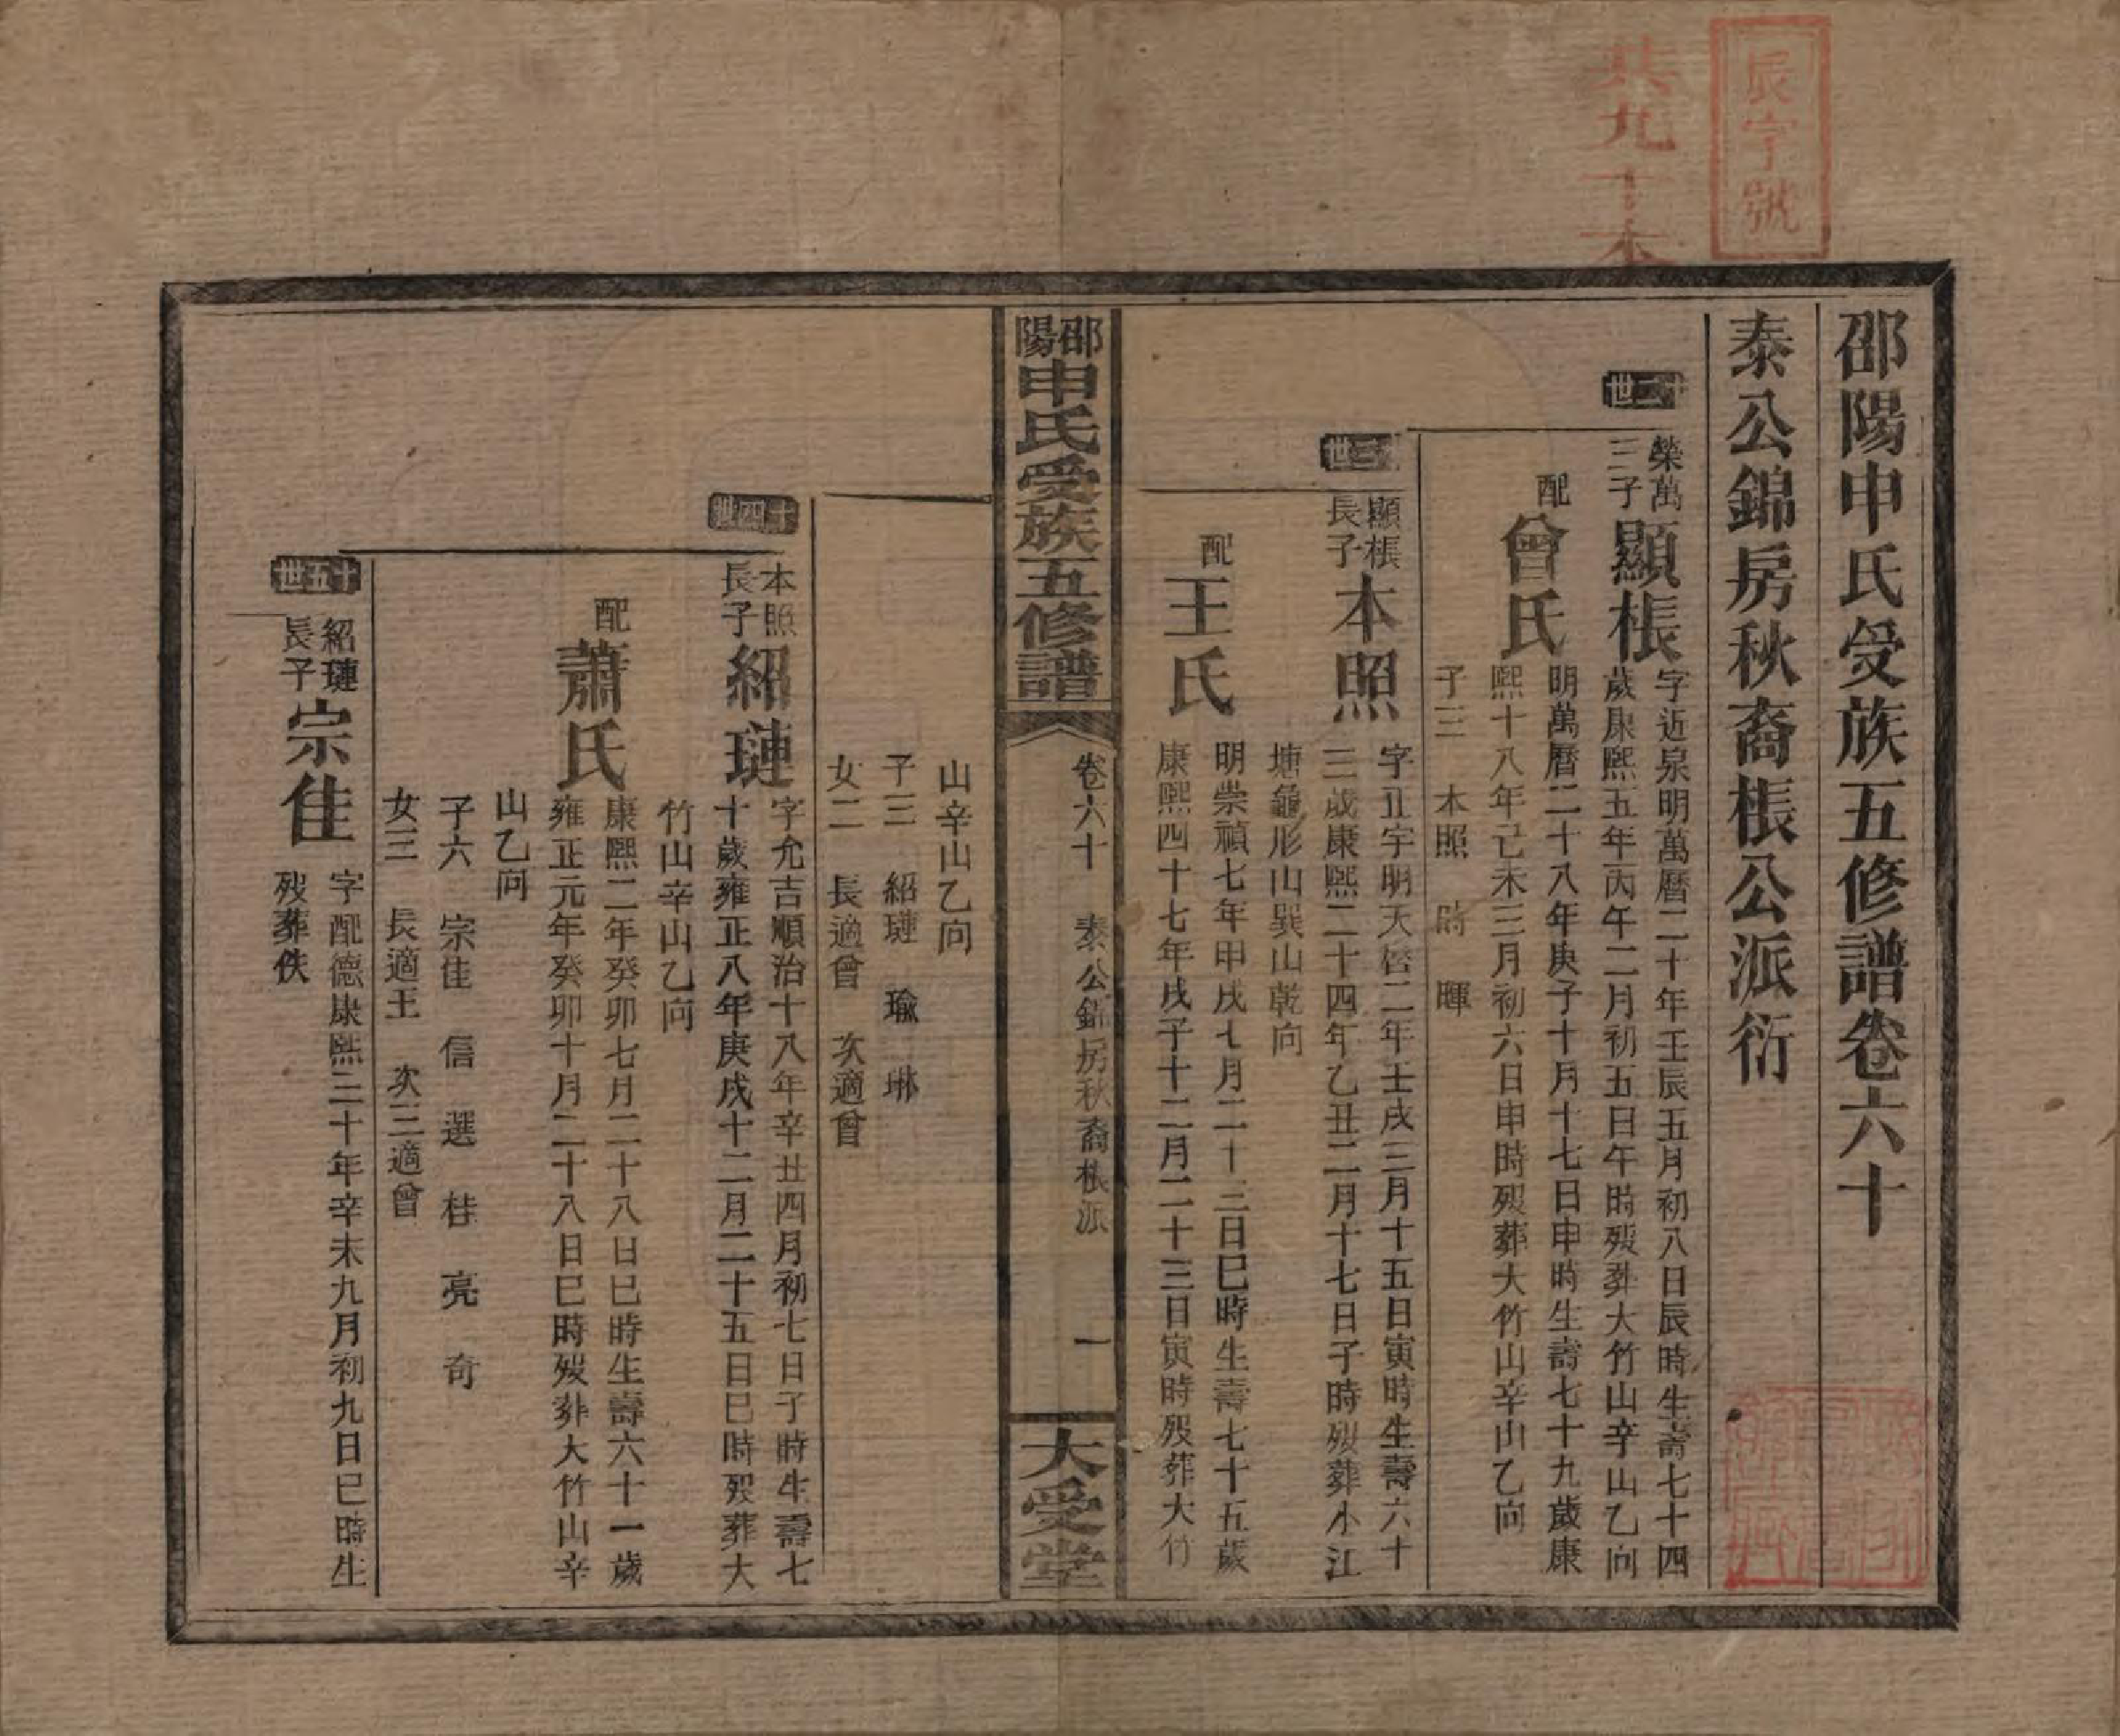 辰字號
共九十本
邵陽申氏受族五修譜卷六十
泰公錦房秋裔棖公派衍
十二世
榮萬三子
顯棖
字近泉明萬曆二十年壬辰五月初八日辰時生壽七十四
歲康熙五年丙午二月初五日午時殁葬大竹山辛山乙向
配曾氏
明萬曆二十八年庚子十月十七日申時生壽七十九歲康
熙十八年己未三月初六日申時殁葬大竹山辛山乙向
子三 本照 時 暉
十三世
顯棖長子
本照
字丑宇明天啓二年壬戌三月十五日寅時生壽六十
三歲康熙二十四年乙丑二月十七日子時殁葬小江
塘龜形山巽山乾向
配王氏
明崇禎七年甲戌七月二十三日巳時生壽七十五歲
康熙四十七年戊子十二月二十三日寅時殁葬大竹
邵陽申氏受族五修譜
卷六十 泰公錦房秋裔棖派 一
大受堂
山辛山乙向
子三 紹璉 瑜 琳
女二 長適曾 次適曾
十四世
本照長子
紹璉
字允吉順治十八年辛丑四月初七日子時生壽七
十歲雍正八年庚戌十二月二十五日巳時殁葬大
竹山辛山乙向
配蕭氏
康熙二年癸卯七月二十八日巳時生壽六十一歲
雍正元年癸卯十月二十八日巳時殁葬大竹山辛
山乙向
子六 宗佳 信 選 桂 亮 奇
女三 長適王 次三適曾
十五世
紹璉長子
宗佳
字配德康熙三十年辛未九月初九日巳時生
殁葬佚